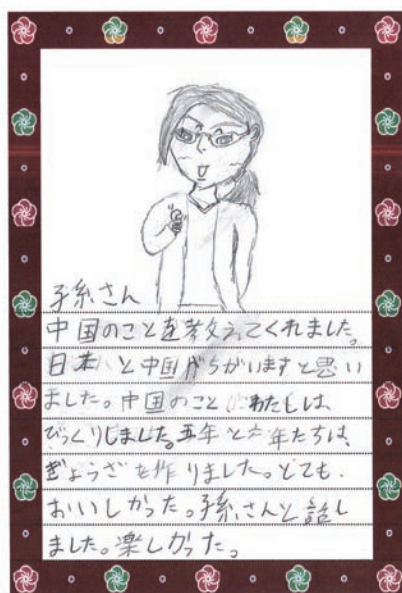 孫さん
中国のことを考えてくれました。
日本と中国がちがいますと思い
ました。中国のことがわたしは、
びっくりしました。五年と六年たちは、
ぎょうざを作りました。とても、
おいしかった。孫さんと話し
ました。楽しかった。